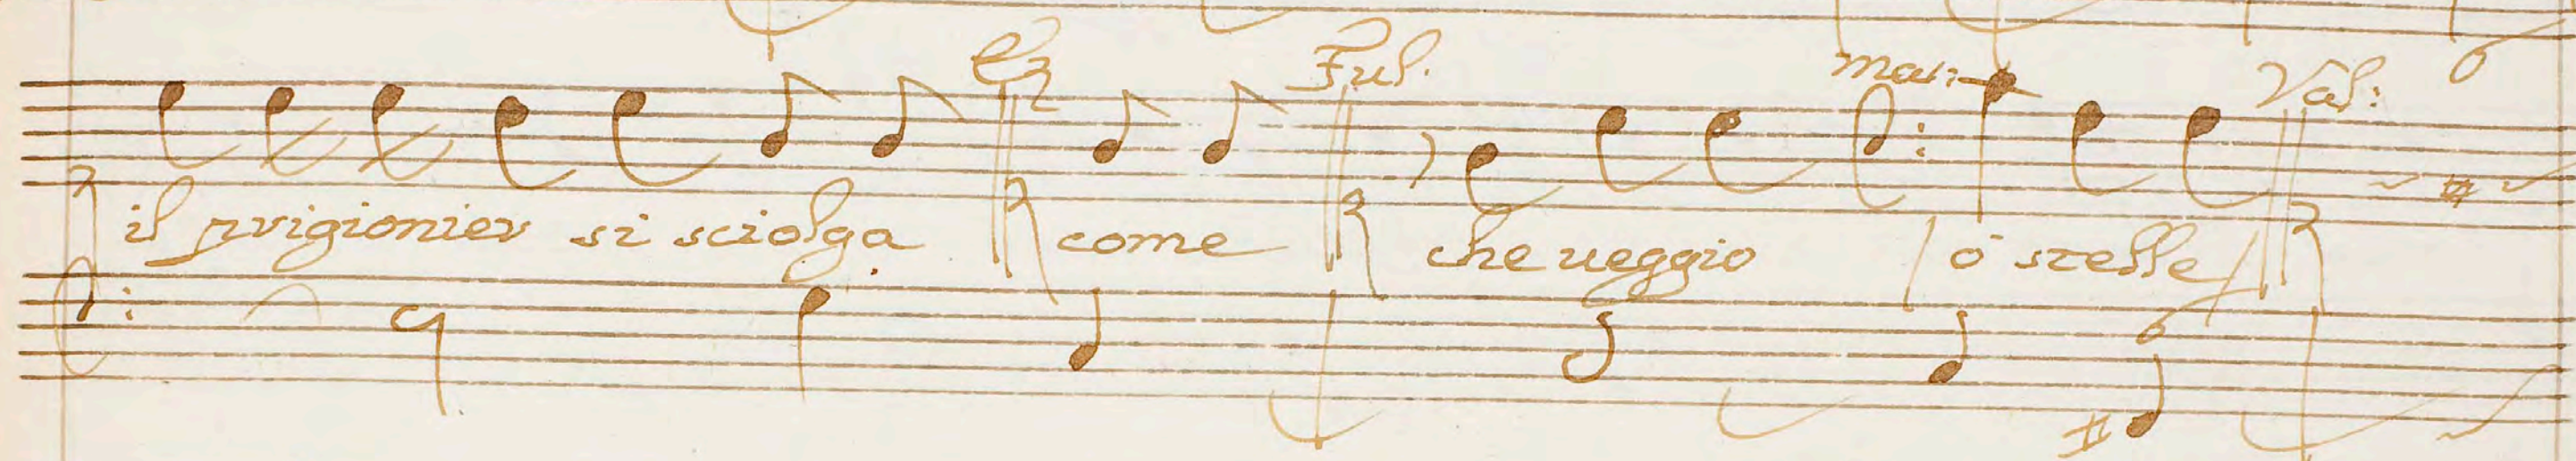 Er Ful. mar: Val: 6
il prigionier si sciolga come che ueggio ò stelle
6